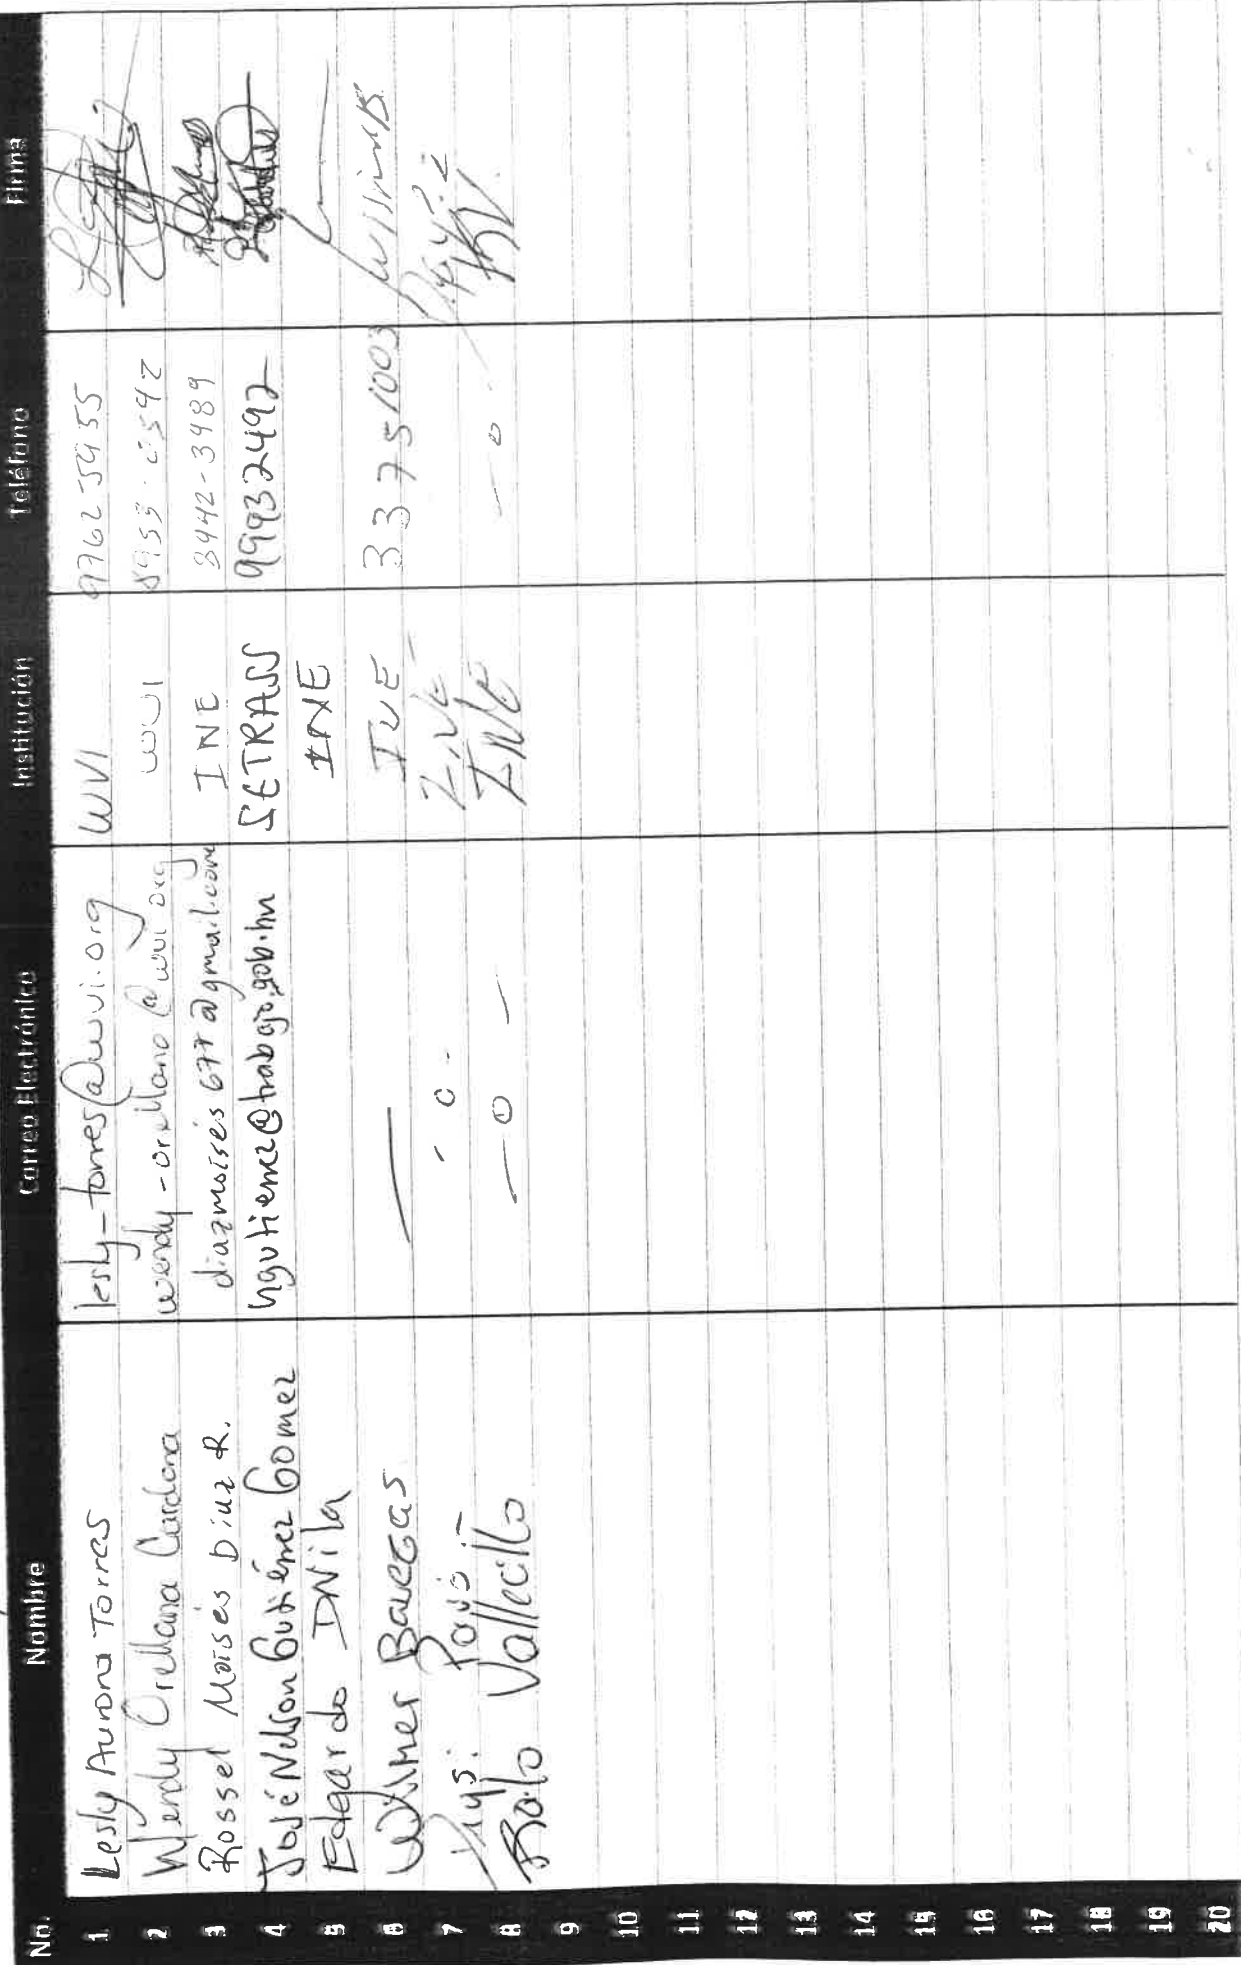 No. Nombre Correo Electrónico Institución Teléfono Firma
1 Lesly Aurora Torres lesly_torres@wvi.org WVI 9762-5955
2 Wendy Orellana Cardona wendy-orellana@wvi.org WVI
3 Rossel Moisés Díaz R. diazmoisés677@gmail.com INE 3442-3489
4 José Nelson Gutiérrez Gomez ngutierrez@trabajo.gob.hn SETRASS 99932492
5 Edgardo INE
6 Wilmer INE 33751003
7 - 0 - INE
8 Vallecillo — 0 — INE — 0 -
9
10
11
12
13
14
15
16
17
18
19
20